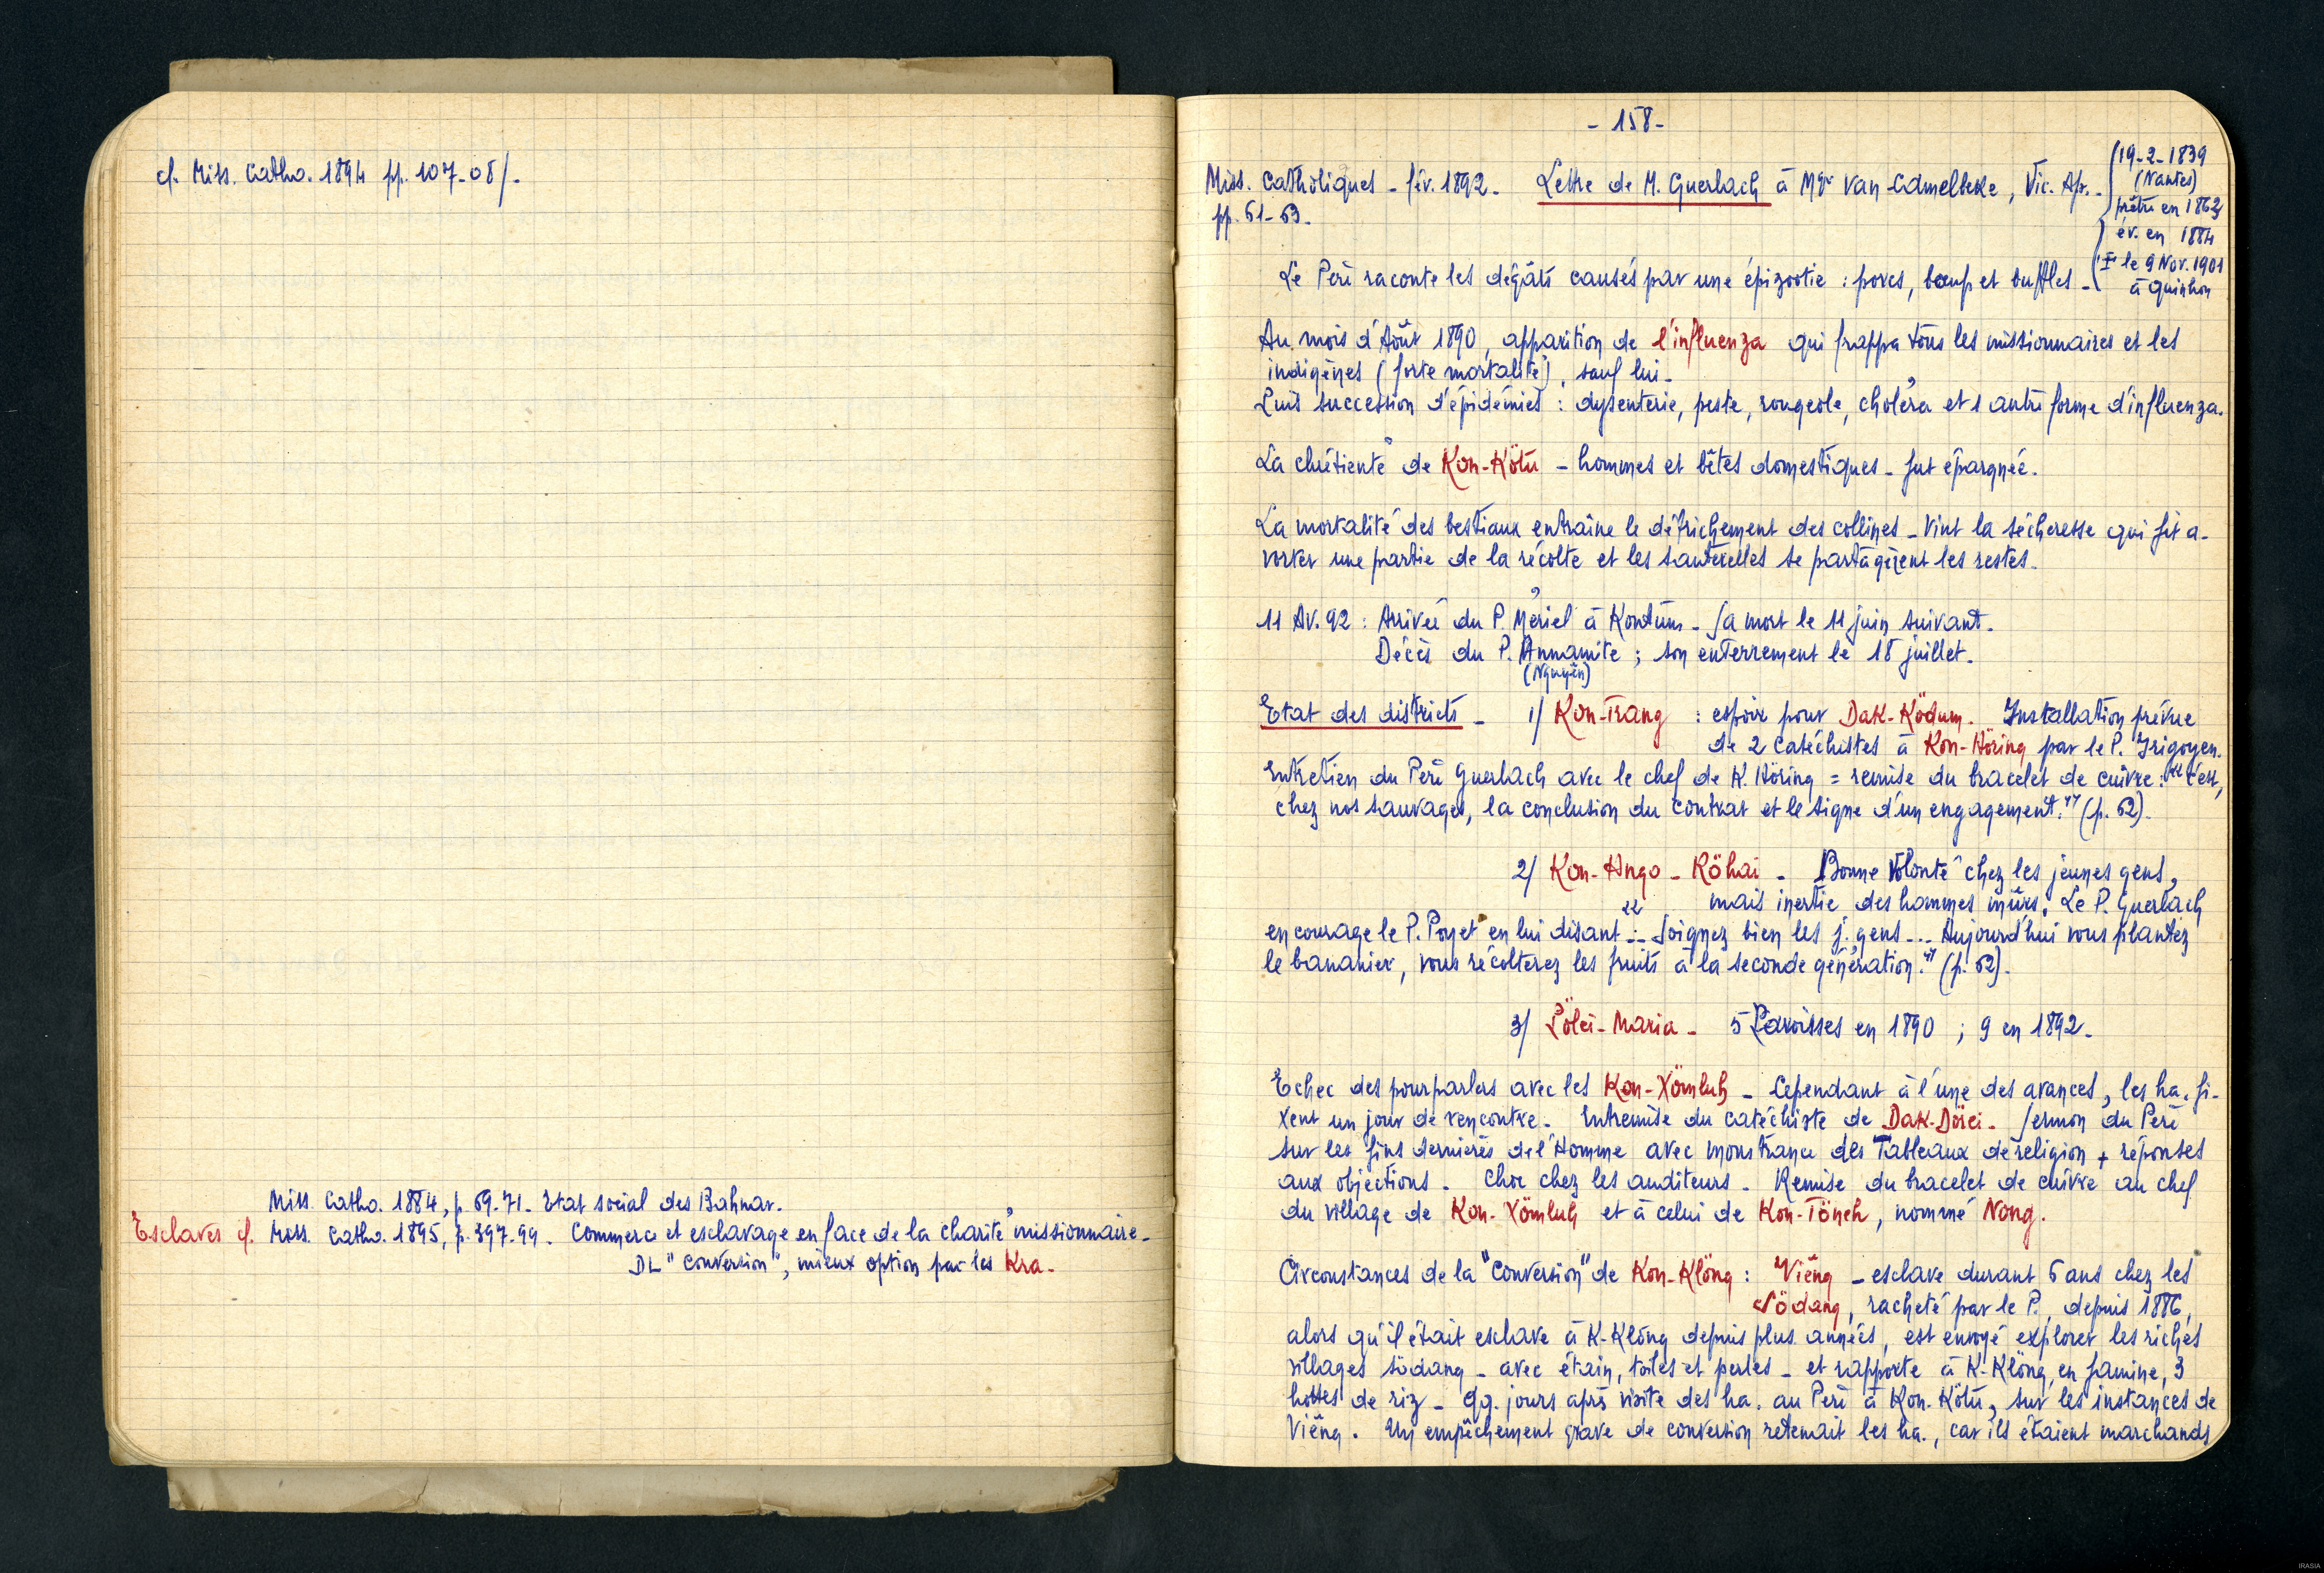 cf. Miss. Catho. 1894 pp. 107-08/.
Miss. Catho. 1884, p. 69-71. Etat social des Bahnar.
Esclaves cf. Miss. Catho. 1895, p. 397-99. Commerce et esclavage en face de la charité missionnaire.
DL "conversion", mieux option par les Kra.
- 158 -
Miss. Catholiques - fév. 1892. Lettre de M. Guerlach à Mgr Van-Camelbeke, Vic. Ap.
pp. 61-63.
19-2-1839
(Nantes)
prêtre en 1863
év. en 1884
le 9 Nov. 1901
à Quinhon
Le Père raconte les dégâts causés par une épizootie : porcs, bœufs et buffles -
Au mois d'Août 1890, apparition de l'influenza qui frappa tous les missionnaires et les
indigènes (forte mortalité), sauf lui.
Puis succession d'épidémies : dysenterie, peste, rougeole, choléra et 1 autre forme d'influenza.
La chrétienté de Kon-Kötu - hommes et bêtes domestiques - fut épargnée.
La mortalité des bestiaux entraîne le défrichement des collines - Vint la sécheresse qui fit a-
vorter une partie de la récolte et les sauterelles se partagèrent les restes.
11 Av. 92 : Arrivée du P. Mériel à Kontum - Sa mort le 11 juin suivant.
Décès du P. Annamite ; son enterrement le 18 juillet.
(Nguyên)
Etat des districts - 1/ Kon-Trang : espoir pour Dak-Ködum. Installation prévue
de 2 catéchistes à Kon-Höring par le P. Irigoyen.
Entretien du Père Guerlach avec le chef de K. Höring = remise du bracelet de cuivre : "c'est,
chez nos sauvages, la conclusion du contrat et le signe d'un engagement." (p. 62).
2/ Kon-Hngo-Köhai - Bonne volonté chez les jeunes gens,
mais inertie des hommes mûrs. Le P. Guerlach
encourage le P. Poyet en lui disant : "Soignez bien les j. gens ... Aujourd'hui vous plantez
le bananier, vous récolterez les fruits à la seconde génération." (p. 62).
3/ Pölei-Maria - 5 Paroisses en 1890 ; 9 en 1892.
Echec des pourparlers avec les Kon-Xömluh - Cependant à l'une des avances, les ha. fi-
xent un jour de rencontre. Entremise du catéchiste de Dak-Dörei. Sermon du Père
sur les fins dernières de l'Homme avec monstrance des Tableaux de religion + réponses
aux objections. Choc chez les auditeurs - Remise du bracelet de cuivre au chef
du village de Kon-Xömluh et à celui de Kon-Töneh, nommé Nong.
Circonstances de la "conversion" de Kon-Klöng : Viêng - esclave durant 6 ans chez les
Södang, racheté par le P., depuis 1886,
alors qu'il était esclave à K-Klöng depuis plus. années, est envoyé explorer les riches
villages södang - avec étain, toiles et perles - et rapporte à K-Klöng, en famine, 3
hottes de riz - Qq. jours après visite des ha. au Père à Kon-Kötu, sur les instances de
Viêng. Un empêchement grave de conversion retenait les ha., car ils étaient marchands